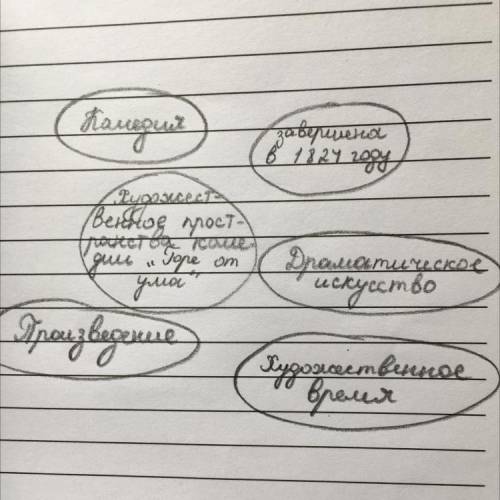 Комедия
завершена
в 1824 году
Художест-
венное прост-
ранства коме-
дии „Горе от
ума“
Драматическое
искусство
Произведение
Художественное
время